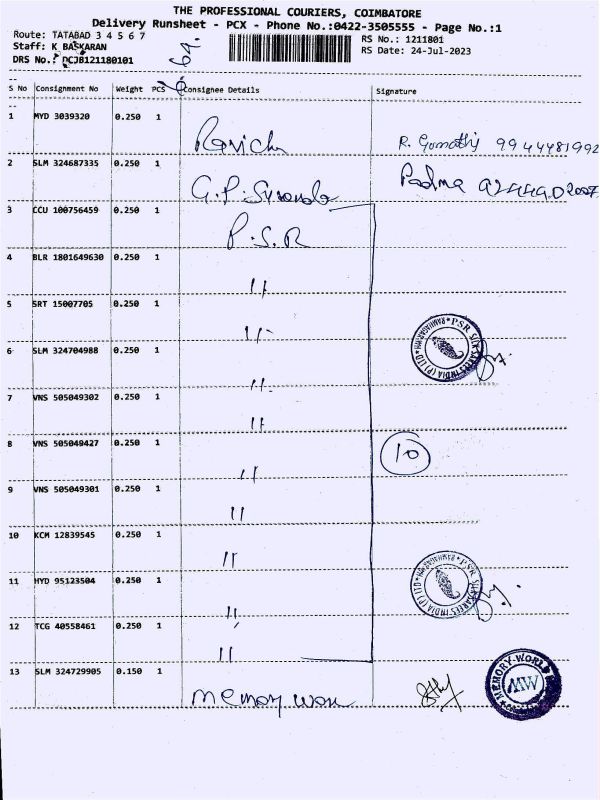 THE PROFESSIONAL COURIERS, COIMBATORE
Delivery Runsheet - PCX - Phone No.:0422-3505555 - Page No.:1
Route: TATABAD 3 4 5 6 7
RS No.: 1211801
Staff: K BASKARAN
RS Date: 24-Jul-2023
DRS No.: DCJB121180101
S No Consignment No Weight PCS Consignee Details Signature
1 MYD 3039320 0.250 1
R. Gomathy 9944481992
2 SLM 324687335 0.250 1
G.P. Padma
3 CCU 100756459 0.250 1
P.S.R
4 BLR 1801649630 0.250 1
"
5 SRT 15007705 0.250 1
"
PSR SILK SAREES INDIA (P) LTD
6 SLM 324704988 0.250 1
"
7 VNS 505049302 0.250 1
"
8 VNS 505049427 0.250 1
10
"
9 VNS 505049301 0.250 1
"
10 KCM 12839545 0.250 1
"
11 HYD 95123504 0.250 1
PSR SILK SAREES INDIA (P) LTD
"
12 TCG 40558461 0.250 1
"
13 SLM 324729905 0.150 1
MEMORY WORLD
MW
Memory